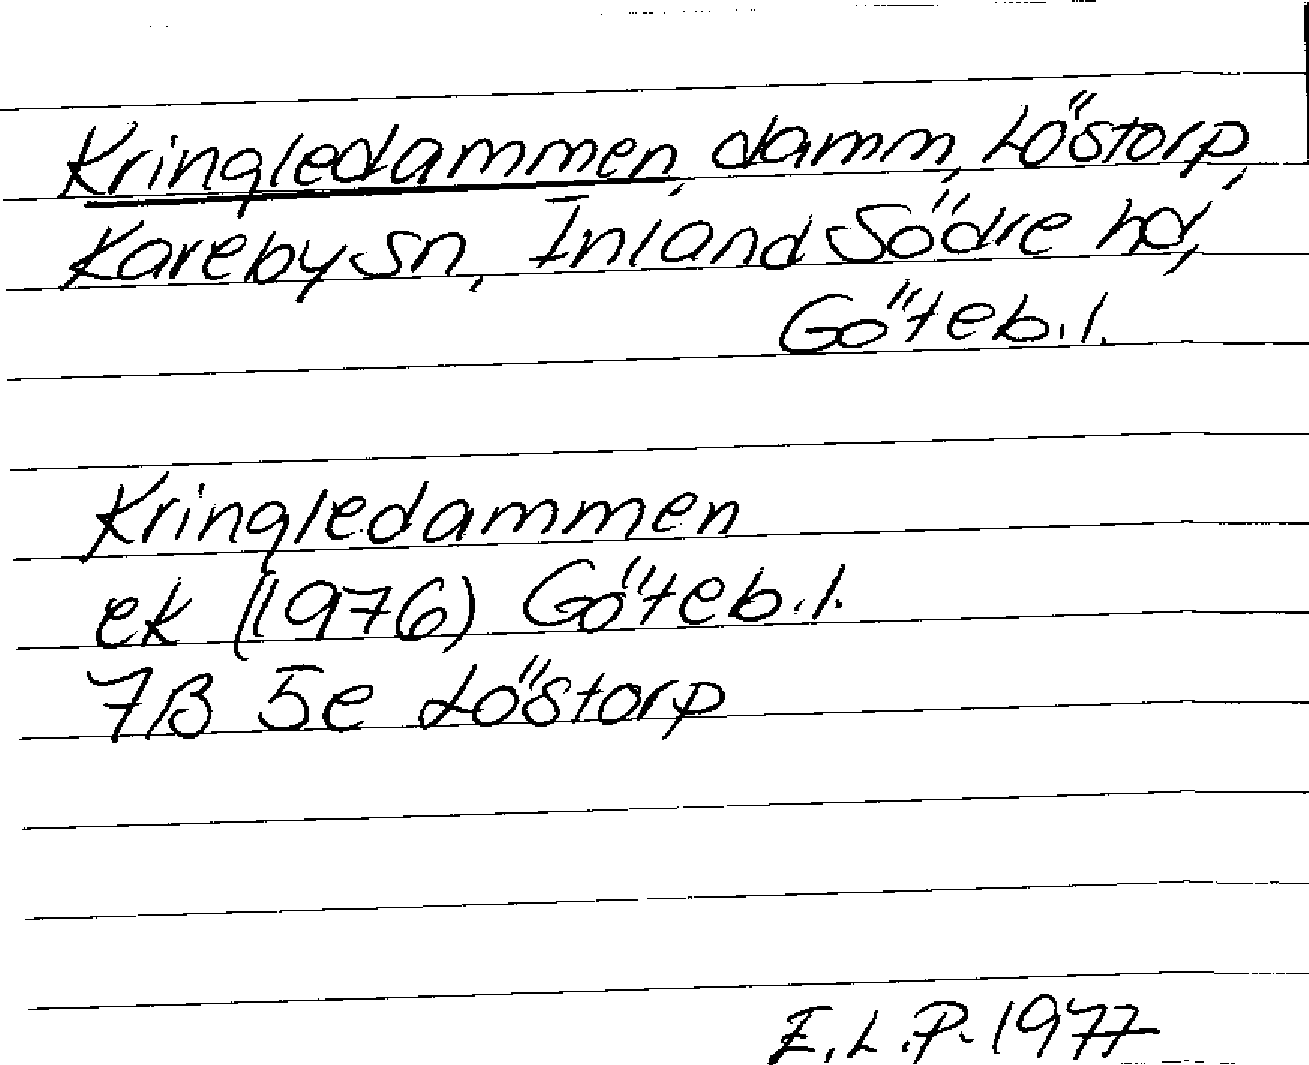 Kringledammen, damm, Löstorp,
Kareby sn, Inland Södre hd,
Göteb.l.
Kringledammen
ek (1976) Göteb.l.
7B 5e Löstorp
E.L.P. 1977